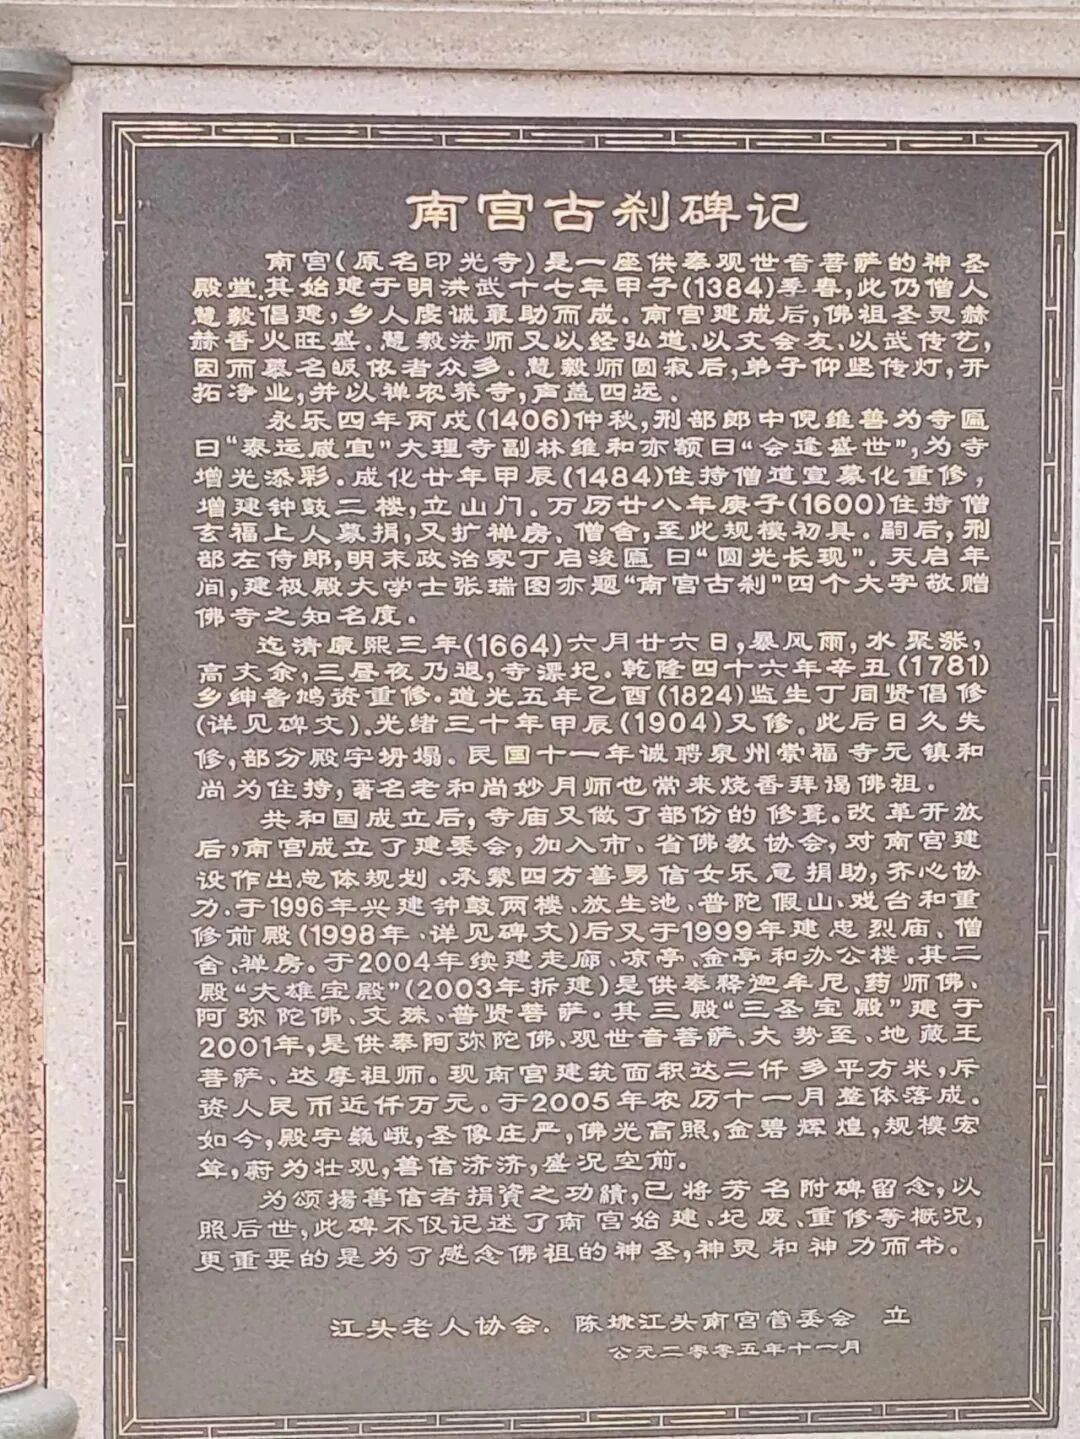 南宫古刹碑记
南宫(原名印光寺)是一座供奉观世音菩萨的神圣
殿堂.其始建于明洪武十七年甲子(1384)季春,此仍僧人
慧毅倡建,乡人虔诚募助而成.南宫建成后,佛祖圣灵赫
赫香火旺盛.慧毅法师又以经弘道、以文会友、以武传艺,
因而慕名皈依者众多.慧毅师圆寂后,弟子仰坚传灯,开
拓净业,并以禅农养寺,声盖四远.
永乐四年丙戌(1406)仲秋,刑部郎中倪维善为寺匾
曰“泰运咸宜”大理寺副林维和亦额曰“会逢盛世”,为寺
增光添彩.成化廿年甲辰(1484)住持僧道宣募化重修,
增建钟鼓二楼,立山门.万历廿八年庚子(1600)住持僧
玄福上人募捐,又扩禅房、僧舍,至此规模初具.嗣后,刑
部左侍郎,明末政治家丁启浚匾曰“圆光长现”.天启年
间,建极殿大学士张瑞图亦题“南宫古刹”四个大字敬赠
佛寺之知名度.
迄清康熙三年(1664)六月廿六日,暴风雨,水聚涨,
高丈余,三昼夜乃退,寺漂圮.乾隆四十六年辛丑(1781)
乡绅耆鸠资重修.道光五年乙酉(1824)监生丁同贤倡修
(详见碑文).光绪三十年甲辰(1904)又修.此后日久失
修,部分殿宇坍塌.民国十一年诚聘泉州崇福寺元镇和
尚为住持,著名老和尚妙月师也常来烧香拜谒佛祖.
共和国成立后,寺庙又做了部份的修葺.改革开放
后,南宫成立了建委会,加入市、省佛教协会,对南宫建
设作出总体规划.承蒙四方善男信女乐意捐助,齐心协
力.于1996年兴建钟鼓两楼、放生池、普陀假山、戏台和重
修前殿(1998年、详见碑文)后又于1999年建忠烈庙、僧
舍、禅房.于2004年续建走廊、凉亭、金亭和办公楼.其二
殿“大雄宝殿”(2003年拆建)是供奉释迦牟尼、药师佛、
阿弥陀佛、文殊、普贤菩萨.其三殿“三圣宝殿”建于
2001年,是供奉阿弥陀佛、观世音菩萨、大势至、地藏王
菩萨、达摩祖师.现南宫建筑面积达二仟多平方米,斥
资人民币近仟万元.于2005年农历十一月整体落成.
如今,殿宇巍峨,圣像庄严,佛光高照,金碧辉煌,规模宏
耸,蔚为壮观,善信济济,盛况空前.
为颂揚善信者捐資之功績,已将芳名附碑留念,以
照后世,此碑不仅记述了南宫始建、圮废、重修等概况,
更重要的是为了感念佛祖的神圣,神灵和神力而书.
江头老人协会. 陈埭江头南宫管委会 立
公元二零零五年十一月